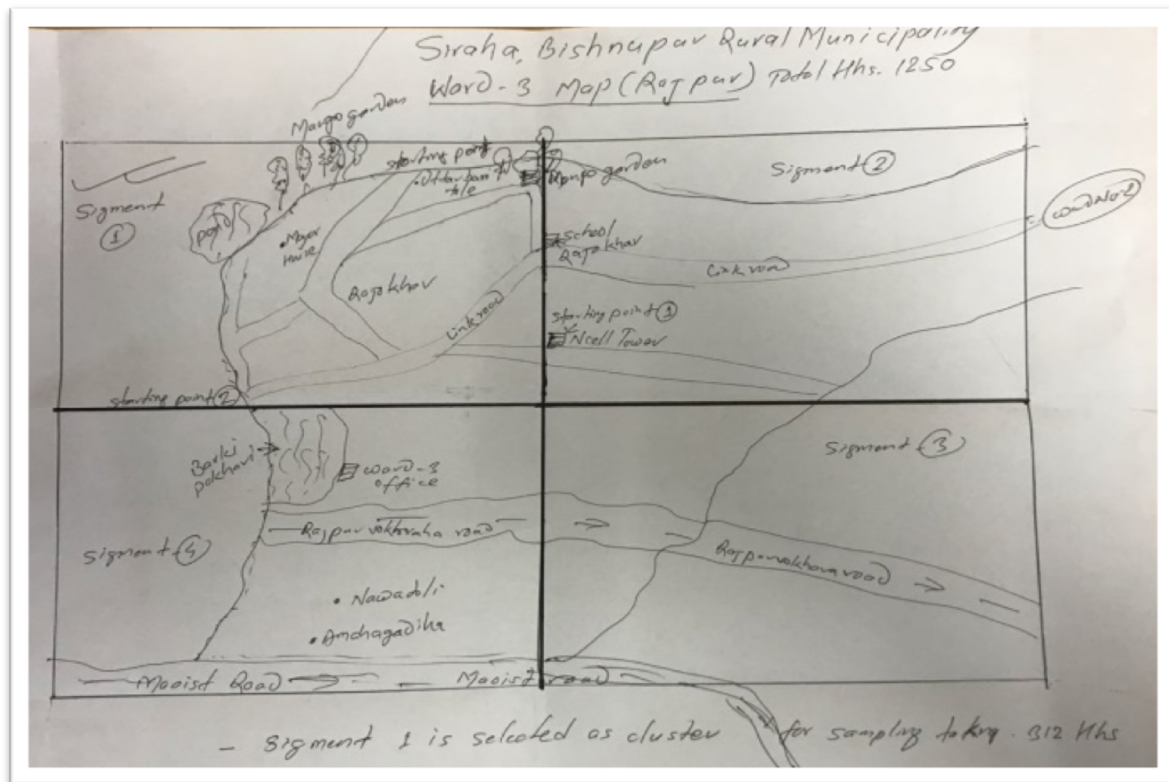 Siraha, Bishnupur Rural Municipality
Ward-3 Map (Rajpur) Total Hhs. 1250
Mango garden
Sigment
1
pond
Major
House
starting point 1
tole
Mango garden
Sigment 2
Ward No-2
School
Rajokhar
Rajokhar
Link road
Link road
starting point 1
Ncell Tower
starting point 2
Barki
pokhari
ward-3
office
Sigment 3
Sigment 4
Rajpur vokhraha road
Rajpurvokhara road
• Nawatoli
• Amchagadiha
Maoist Road
Maoist road
- Sigment 1 is selected as cluster for sampling taking. 312 Hhs